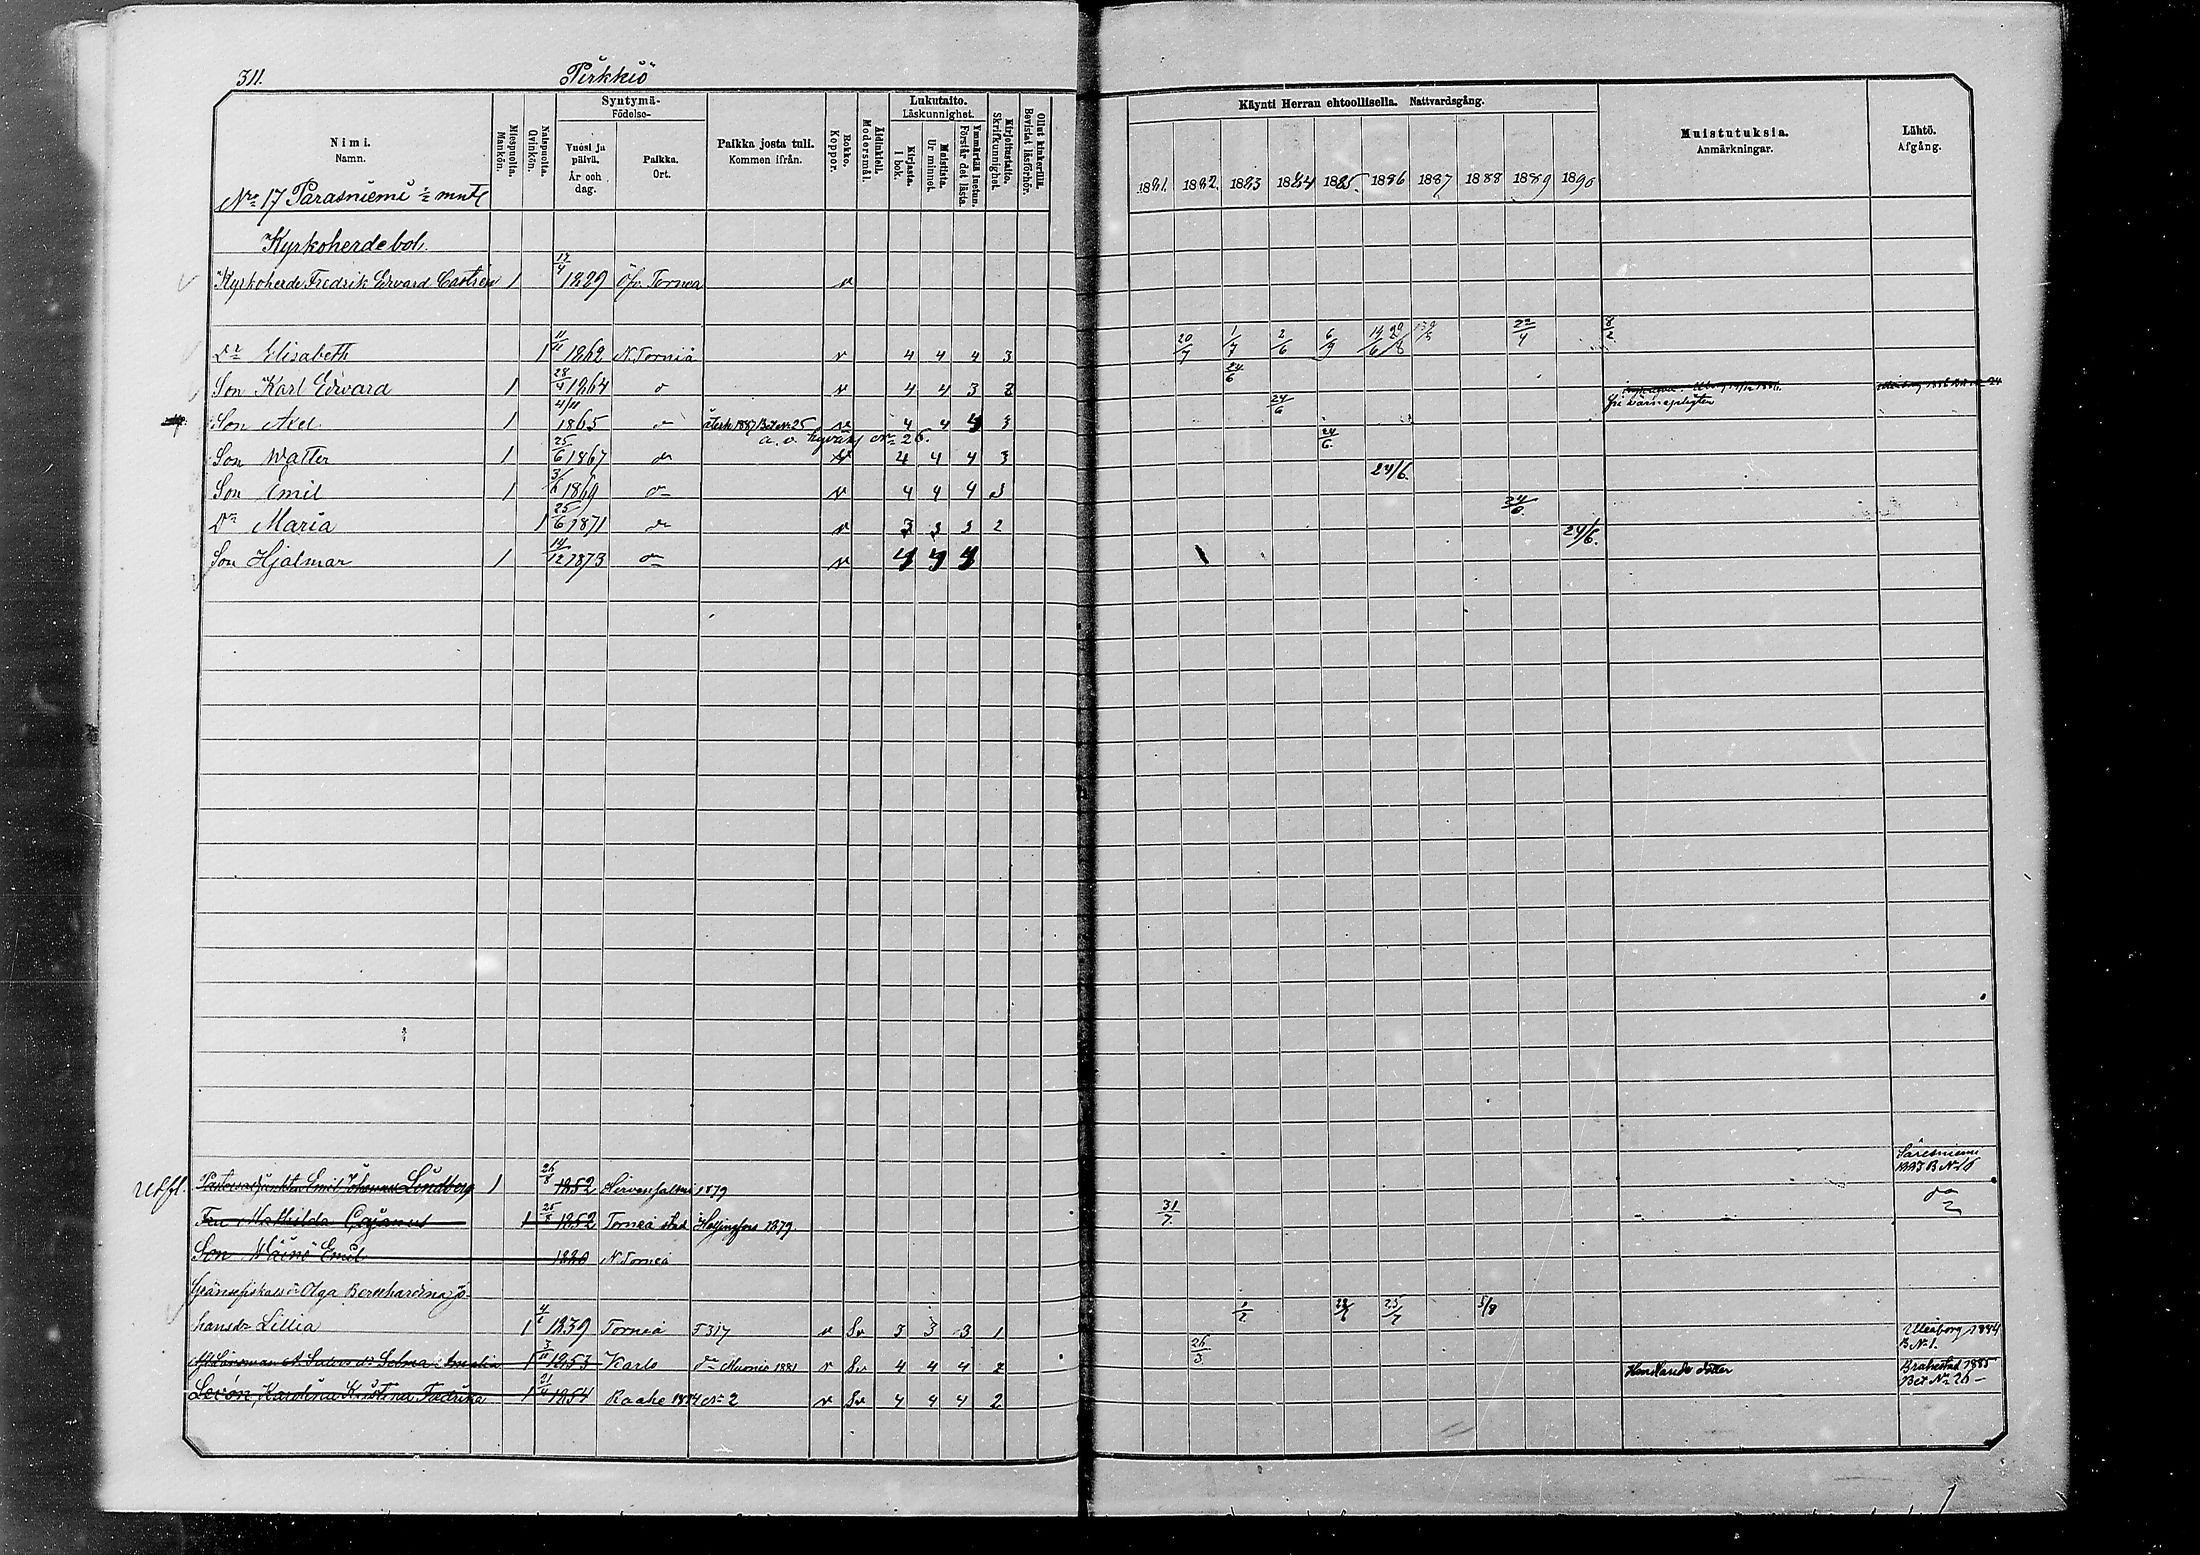 311.
Pirkkiö
Nimi.
Namn.
Miespuolta.
Mankön.
Naispuolta.
Qvinkön.
Syntymä-
Födelse-
Vuosi ja päivä.
År och dag.
Paikka.
Ort.
Paikka josta tuli.
Kommen ifrån.
Rokko.
Koppor.
Äidinkieli.
Modersmål.
Lukutaito.
Läskunnighet.
Kirjasta.
I bok.
Muistista.
Ur minnet.
Ymmärtää luetun.
Förstår det lästa.
Kirjoitustaito.
Skrifkunnighet.
Ollut kinkerillä.
Bevistat läsförhör.
Käynti Herran ehtoollisella. Nattvardsgång.
1881. 1882. 1883 1884 1885. 1886 1887 1888 1889 1890
Muistutuksia.
Anmärkningar.
Lähtö.
Afgång.
No 17 Parasniemi ½ mntl
Kyrkoherdebol.
Kyrkoherde Fredrik Edvard Castrén 1 17/4 1829 Öfv. Torneå v
Dr Elisabeth 1 11/11 1862 N. Torneå v 4 4 4 3 20/7 1/7 2/6 6/9 22/4 8/2
Son Karl Edvard 1 28/4 1864 do v 4 4 3 3 24/6
Son Axel 1 4/11 1865 do 1887 Bet No 25 v 4 4 4 3 24/6 värnepligten
No 26.
Son Walter 1 25/6 1867 do v 4 4 4 3 24/6.
Son Emil 1 1869 do v 4 4 4 3 24/6.
Dr Maria 1 25/6 1871 do v 3 3 3 2 24/6.
Son Hjalmar 1 14/12 1873 do v 4 4 4 24/6.
Pastorsadjunkten Emil Johannes Lindberg 1 26/8 1852 Hirvensalmi 1879 Säresniemi
Fru Mathilda Cajanus 1 25/8 1852 Torneå stad Helsingfors 1879. 31/7. do
Son Väinö Emil 1880 N. Torneå
Olga Bernhardina Jo-
hansdr Lillia 1 4/6 1839 Torneå F 317 v Sv 3 3 3 1 1/2 25/7 5/8
Selma Amalia 1 3/11 1853 Karlö do Muonio 1881 v Sv 4 4 4 2 26/3 Uleåborg 1884 B No 1.
Karolina Kristina Fredrika 1 21/4 1854 Raahe 1884 No 2 v Sv 4 4 4 2 Handlande dotter Brahestad 1885 Bet No 26